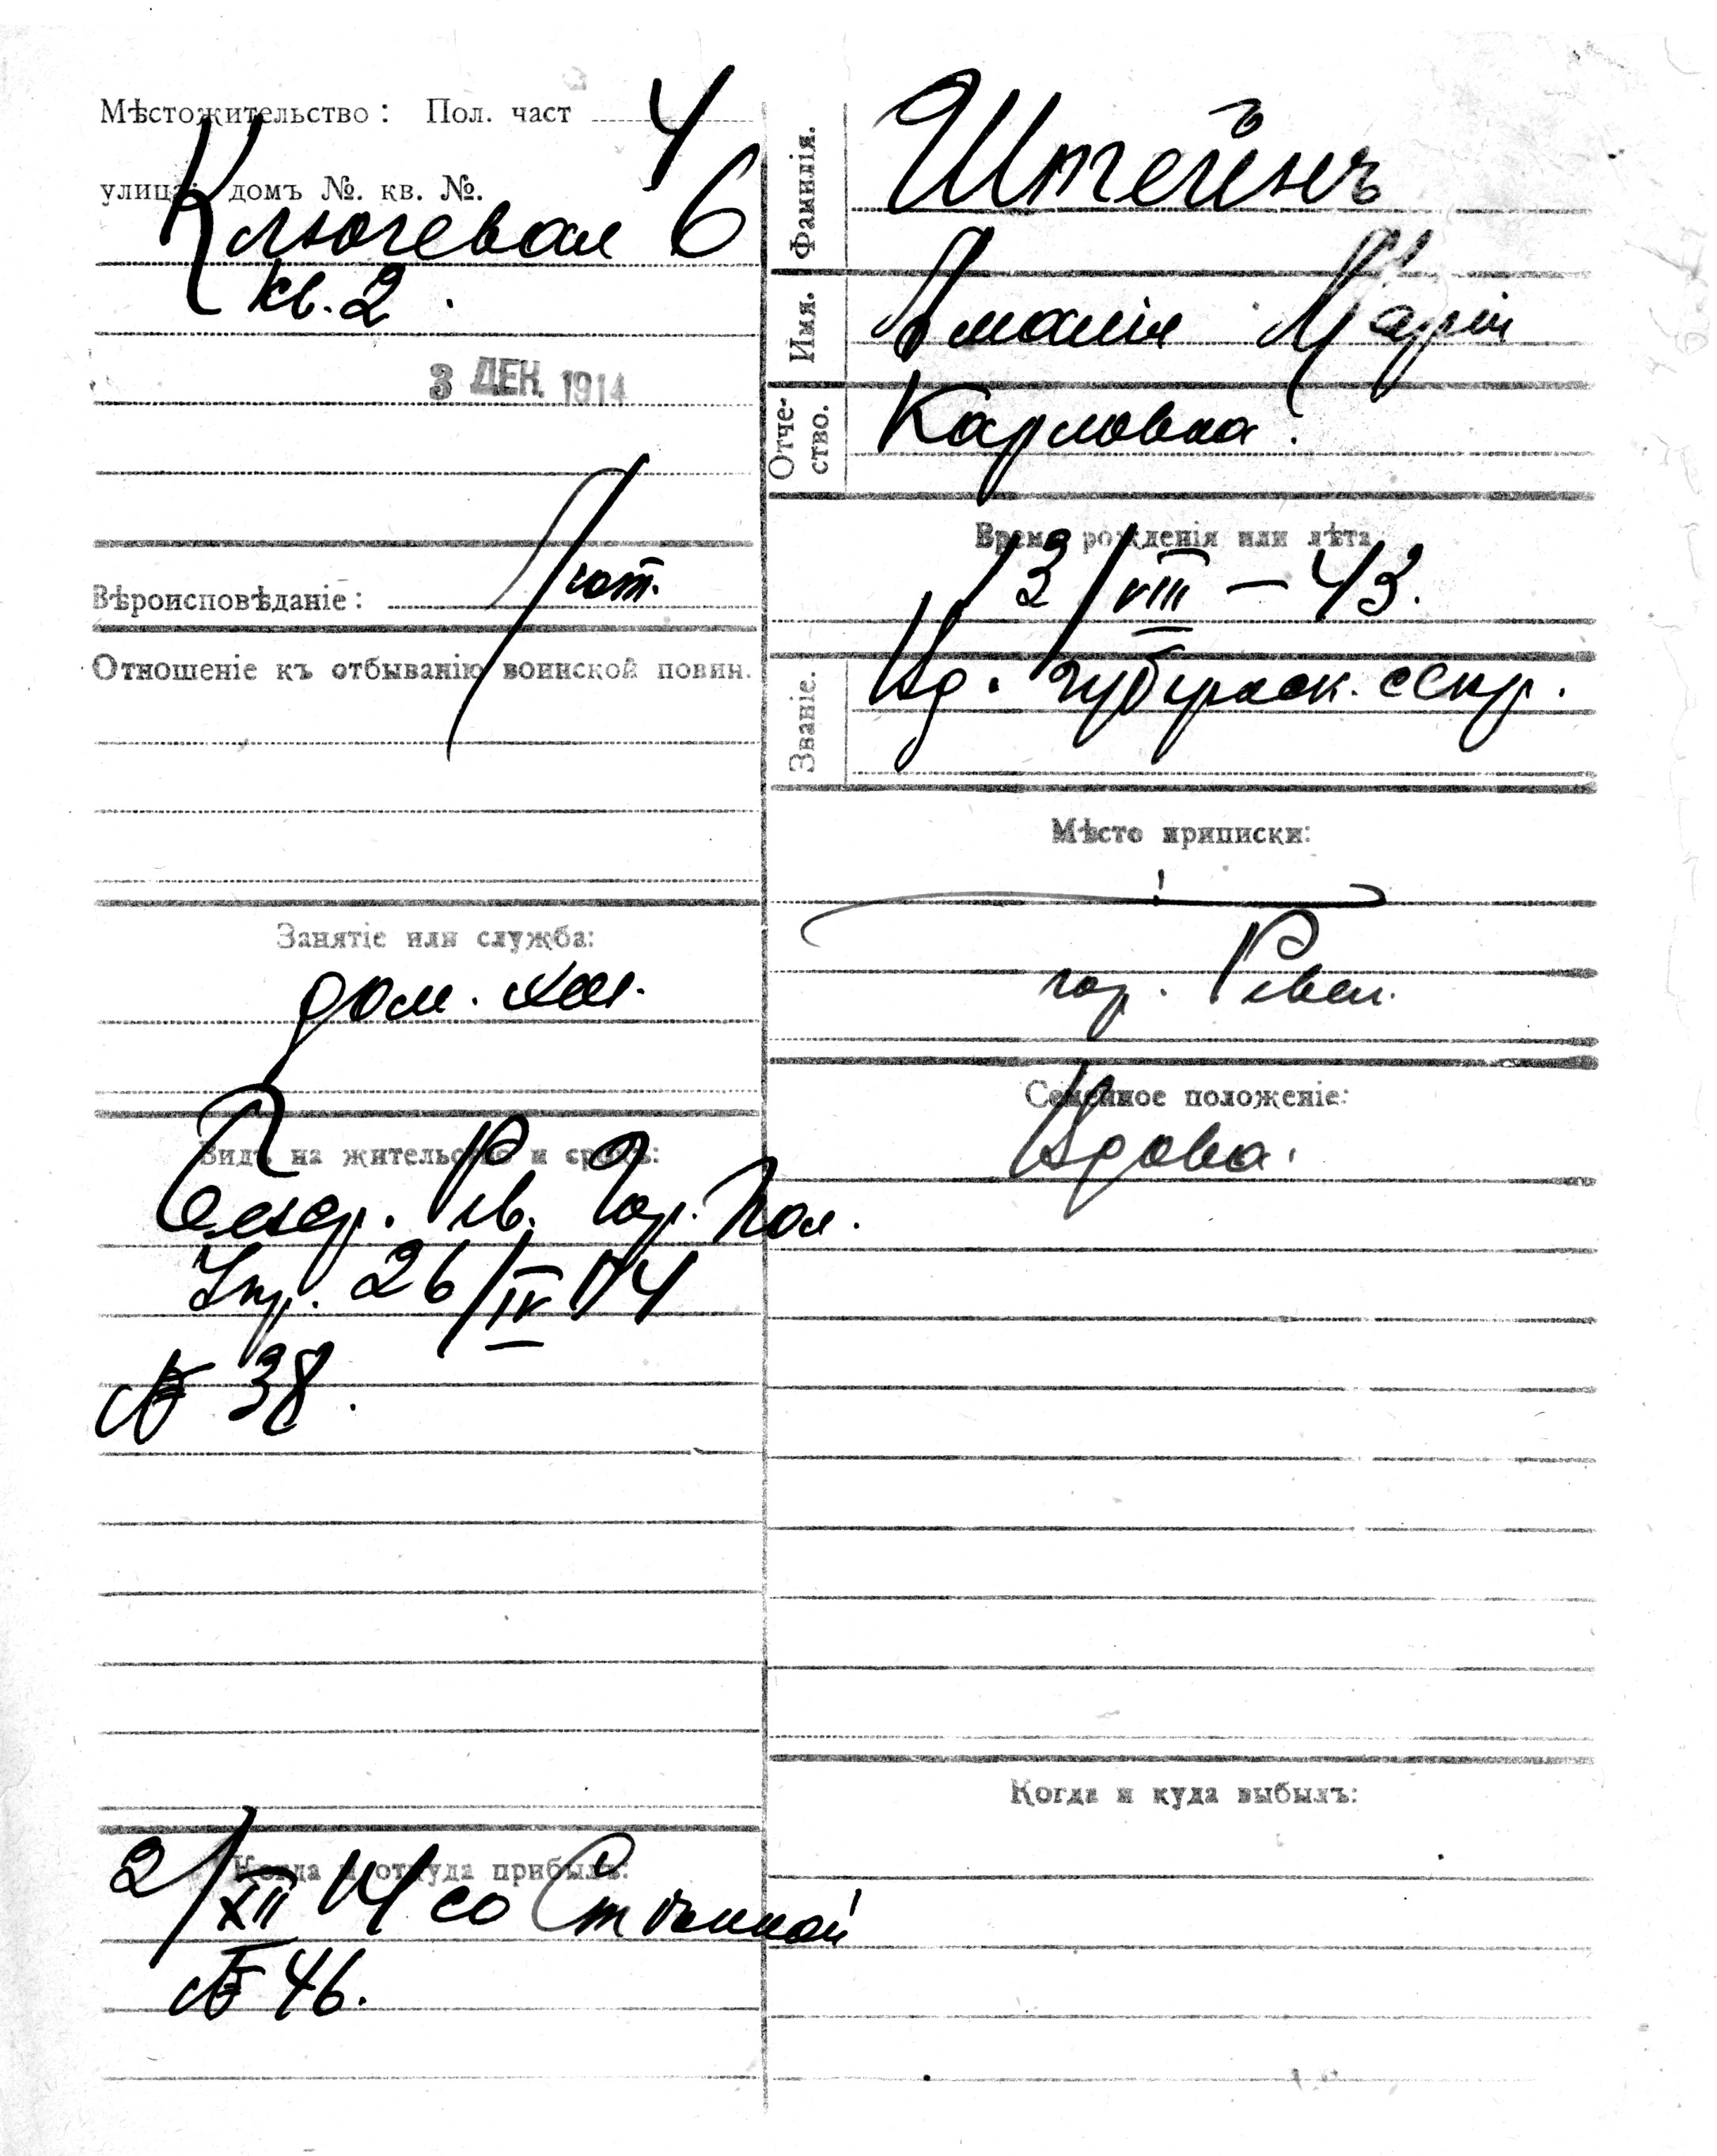 Мѣстожительство: Пол. част 4
улица: домъ №. кв. №.
Ключевая 6
кв. 2.
3 ДЕК. 1914
Вѣроисповѣданіе: Лют.
Отношеніе къ отбыванію воинской повин.
Занятіе или служба:
дом. хоз.
Видъ на жительство и срокъ:
Безср. Рев. Гор. Пол.
Упр. 26/IV 14
№ 38.
Когда и откуда прибылъ:
2/XII 14 со Стѣнной
№ 46.
Фамилія. Штейнъ
Имя. Амалія Марія
Отче-
ство. Карловна.
Время рождения или лѣта
13/VIII - 43.
Званіе. Вд. секр.
Мѣсто приписки:
гор. Ревел.
Семейное положеніе:
Вдова.
Когда и куда выбылъ: